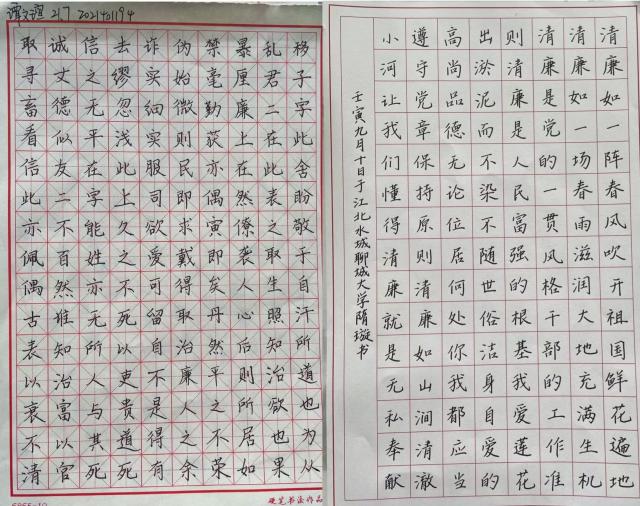 谭文谊 217 2021401194
取诚信去诈伪禁暴乱移
寻丈之缪实始毫厘君子
畜德无忽细微勤廉二字
看似平浅实则获上在此
信友在此服民亦在此舍
此二字上司即偶然表盼
亦不能久欲求寅僚之敬
佩百姓之爱戴即袭取于
偶然亦不可得矣人生自
古谁无死留取丹心照汗
表知所以自治然后知所
以治人吏不廉平则治道
衰富与贵是人之所欲也
不以其道得之不居也为
清官死死有余荣如果从
硬笔书法作品
清廉如一阵春风吹开祖国鲜花遍地
清廉如一场春雨滋润大地充满生机
清廉是党的一贯风格干部的工作准
则清廉是人民富强的根基我爱莲花
出淤泥而不染不随世俗洁身自爱的
高尚品德无论位居何处你我都应当
遵守党章保持原则清廉如山涧清澈
小河让我们懂得清廉就是无私奉献
壬寅九月十日于江北水城聊城大学隋璇书